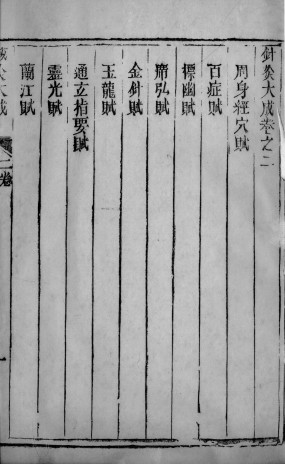 針灸大成卷之二
周身經穴賦
百症賦
標幽賦
席弘賦
金針賦
玉龍賦
通玄指要賦
靈光賦
蘭江賦
灸大成
二卷